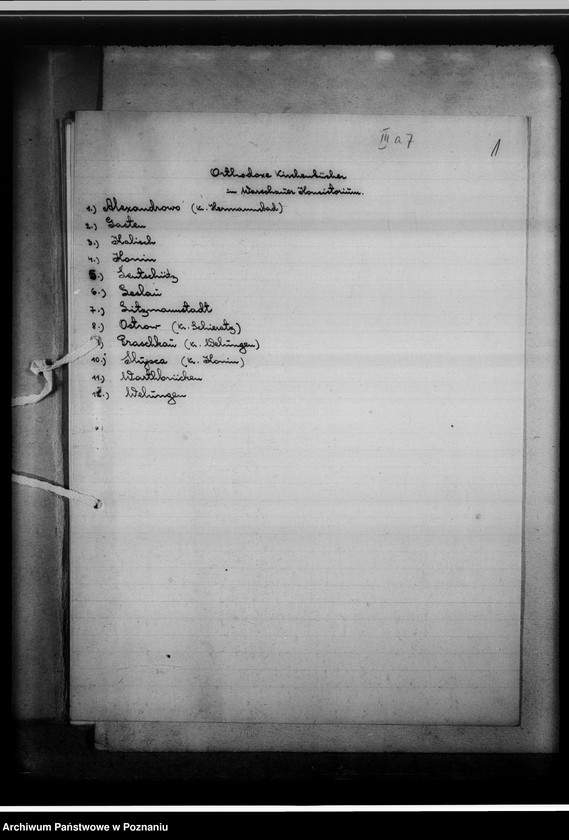 III a 7
1
Orthodoxe Kirchenbücher
im Warschauer Konsistorium.
1.) Alexandrowo (K. Hermannsbad)
2.) Gasten
3.) Kalisch
4.) Konin
5.) Lentschütz
6.) Leslau
7.) Litzmannstadt
8.) Ostrow (K. Schieratz)
) Praschkau (K. Welungen)
10.) Slupca (K. Konin)
11.) Warthbrücken
12.) Welungen
Archiwum Państwowe w Poznaniu